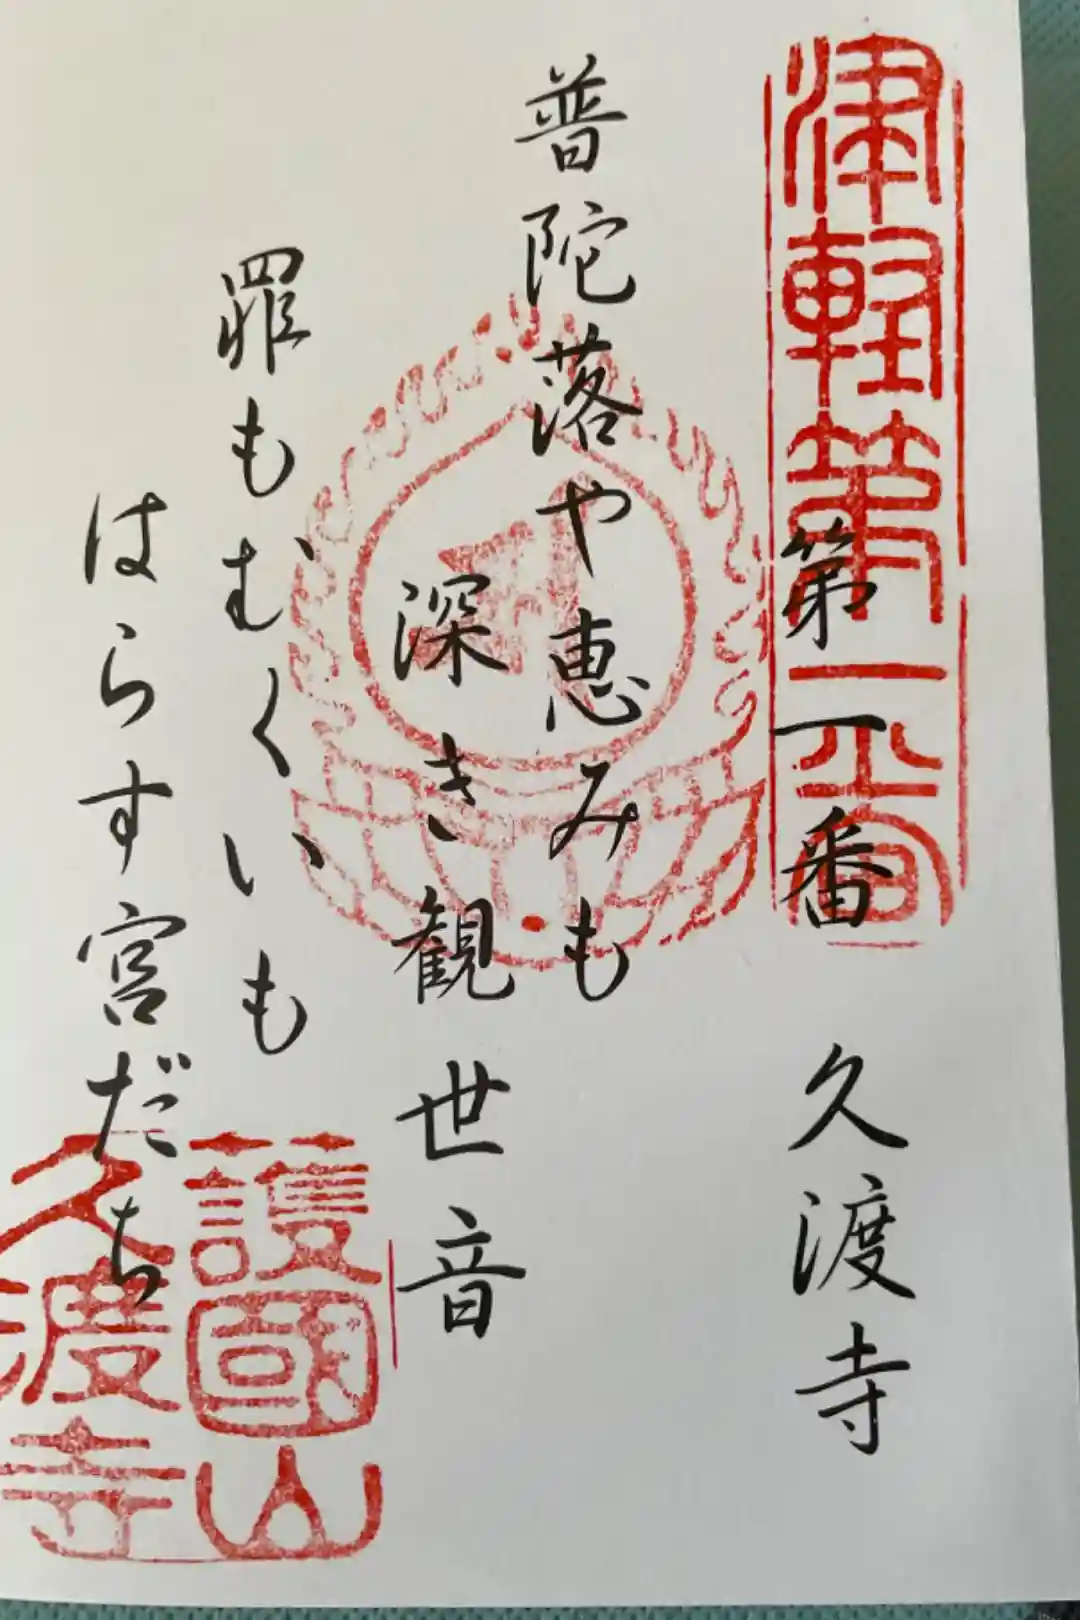 津軽第一番
第一番 久渡寺
普陀落や恵みも
深き観世音
罪もむくいも
はらす宮だち
護國山
久渡寺